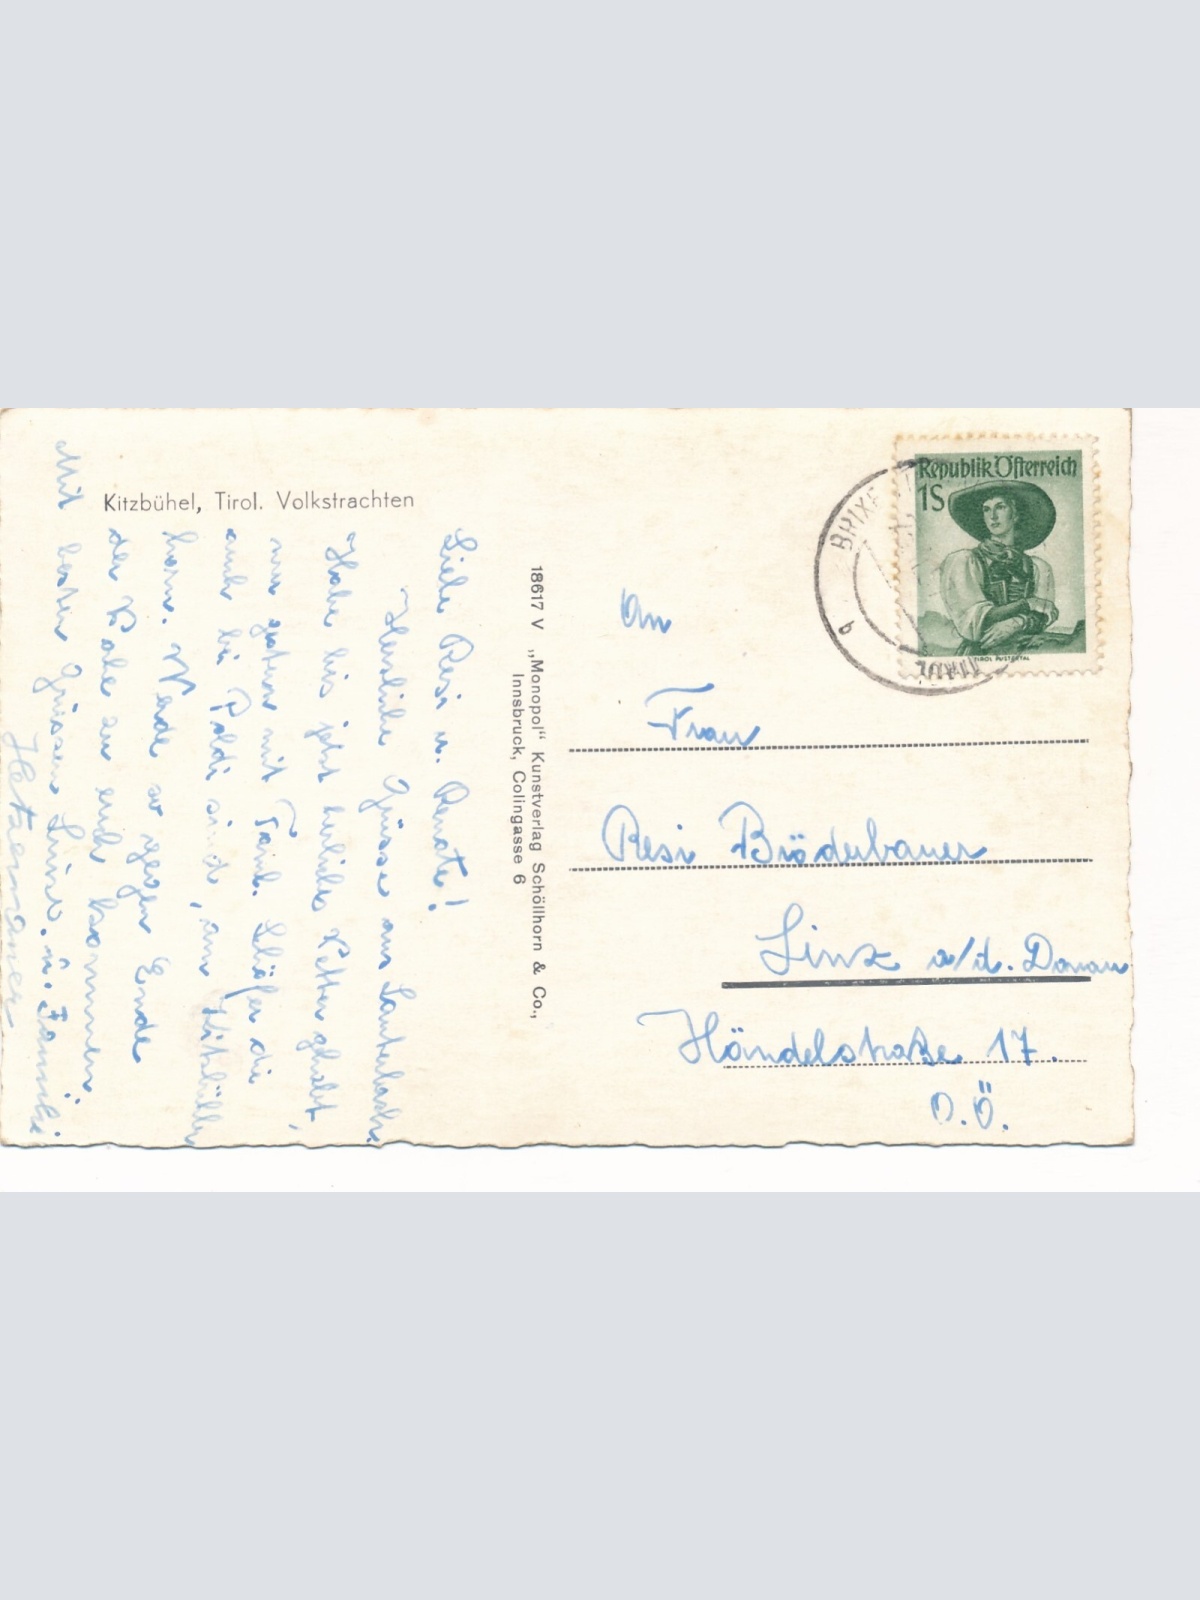 Kitzbühel, Tirol. Volkstrachten
Liebe Resi u. Renate!
Herzliche Grüsse aus Lauterbach
Habe bis jetzt herliches Wetter gehabt,
war gestern mit Fam. die
auch bei Poldi sind, am Kitzbüller
horn. Werde so gegen Ende
der Woche zu euch kommen.
Mit besten Grüssen Luise. u.
18617 V „Monopol“ Kunstverlag Schöllhorn & Co.,
Innsbruck, Colingasse 6
Republik Österreich
1S
TIROL PUSTERTAL
BRIXE
TIROL
b
An
Frau
Resi Bröderbauer
Linz a/d. Donau
Händelstraße 17.
O.Ö.